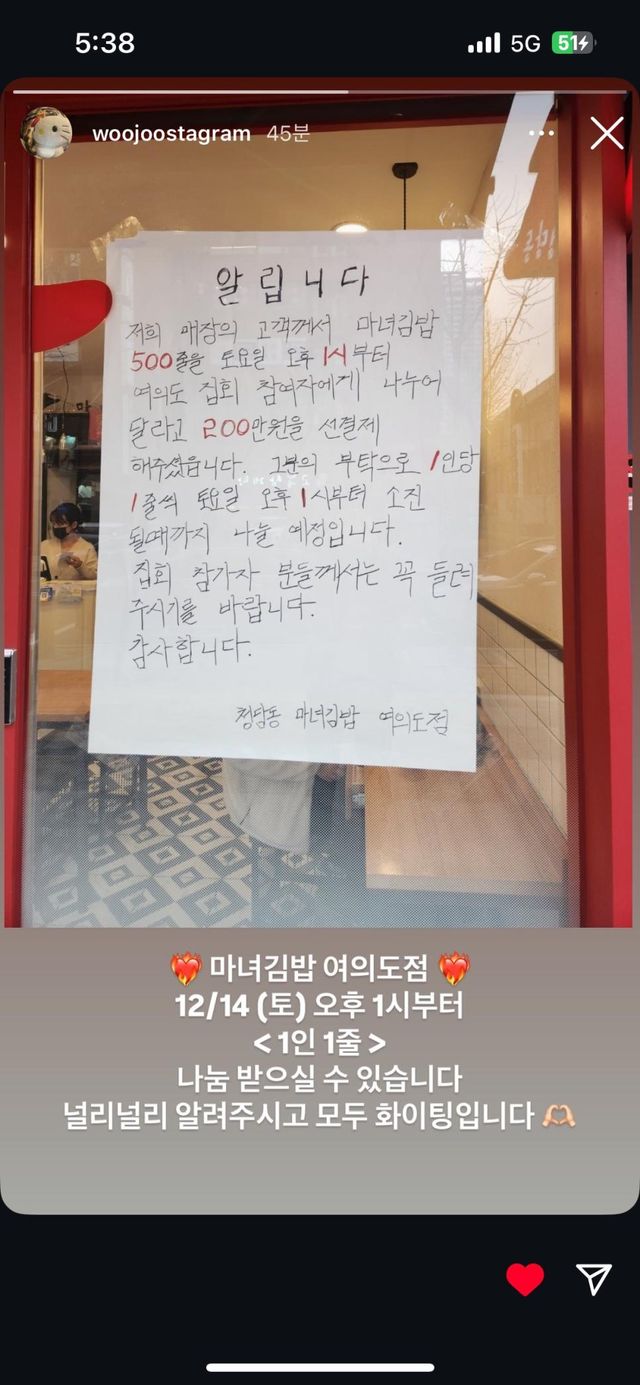 5:38
5G
51
woojoostagram 45분
알립니다
저희 매장의 고객께서 마녀김밥
500줄을 토요일 오후 1시부터
여의도 집회 참여자에게 나누어
달라고 200만원을 선결제
해주셨읍니다. 그분의 부탁으로 1인당
1줄씩 토요일 오후 1시부터 소진
될때까지 나눌 예정입니다.
집회 참가자 분들께서는 꼭 들려
주시기를 바랍니다.
감사합니다.
청담동 마녀김밥 여의도점
❤️‍🔥 마녀김밥 여의도점 ❤️‍🔥
12/14 (토) 오후 1시부터
< 1인 1줄 >
나눔 받으실 수 있습니다
널리널리 알려주시고 모두 화이팅입니다 🫶🏻